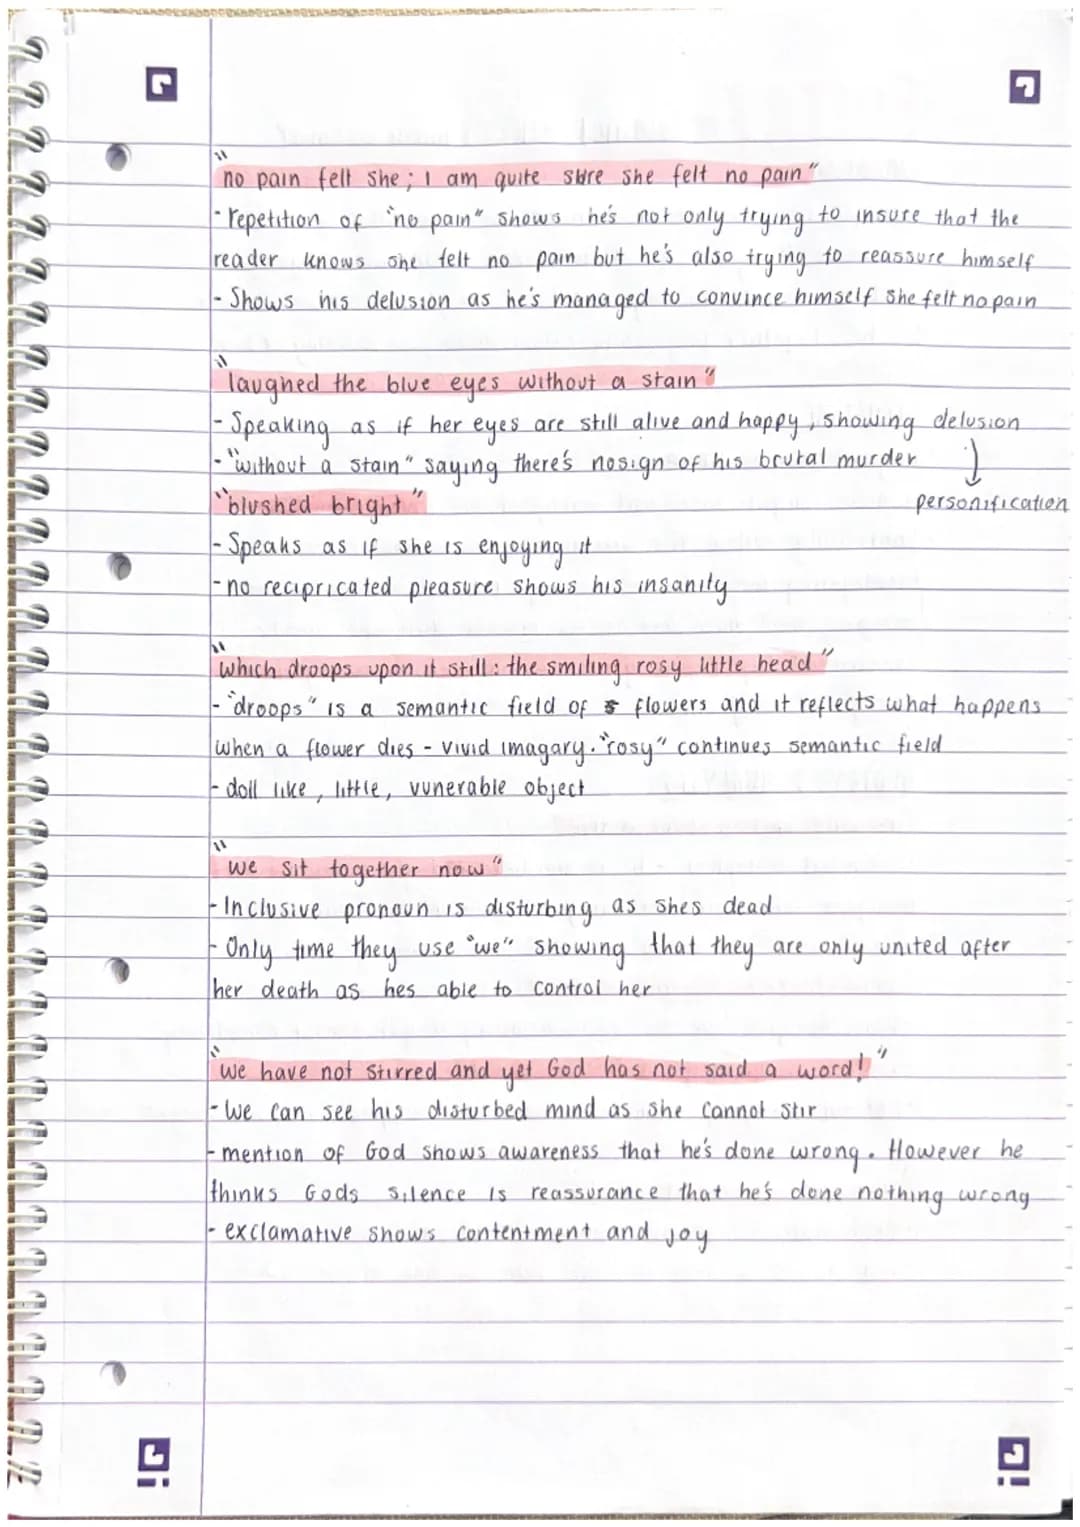 "no pain felt she; I am quite sure she felt no pain"
- repetition of "no pain" shows he's not only trying to insure that the
reader knows she felt no pain but he's also trying to reassure himself
- Shows his delusion as he's managed to convince himself she felt no pain
"laughed the blue eyes without a stain"
- Speaking as if her eyes are still alive and happy, showing delusion
- "without a stain" saying there's no sign of his brutal murder
personification
"blushed bright"
- Speaks as if she is enjoying it
- no recipricated pleasure shows his insanity
"which droops upon it still: the smiling rosy little head"
- "droops" is a semantic field of flowers and it reflects what happens
when a flower dies - vivid imagary. "rosy" continues semantic field
- doll like, little, vunerable object
"we sit together now"
- Inclusive pronoun is disturbing as shes dead
- Only time they use "we" showing that they are only united after
her death as hes able to control her
"we have not stirred and yet God has not said a word!"
- We can see his disturbed mind as she cannot stir
- mention of God shows awareness that he's done wrong. However he
thinks Gods silence is reassurance that he's done nothing wrong
- exclamative shows contentment and joy